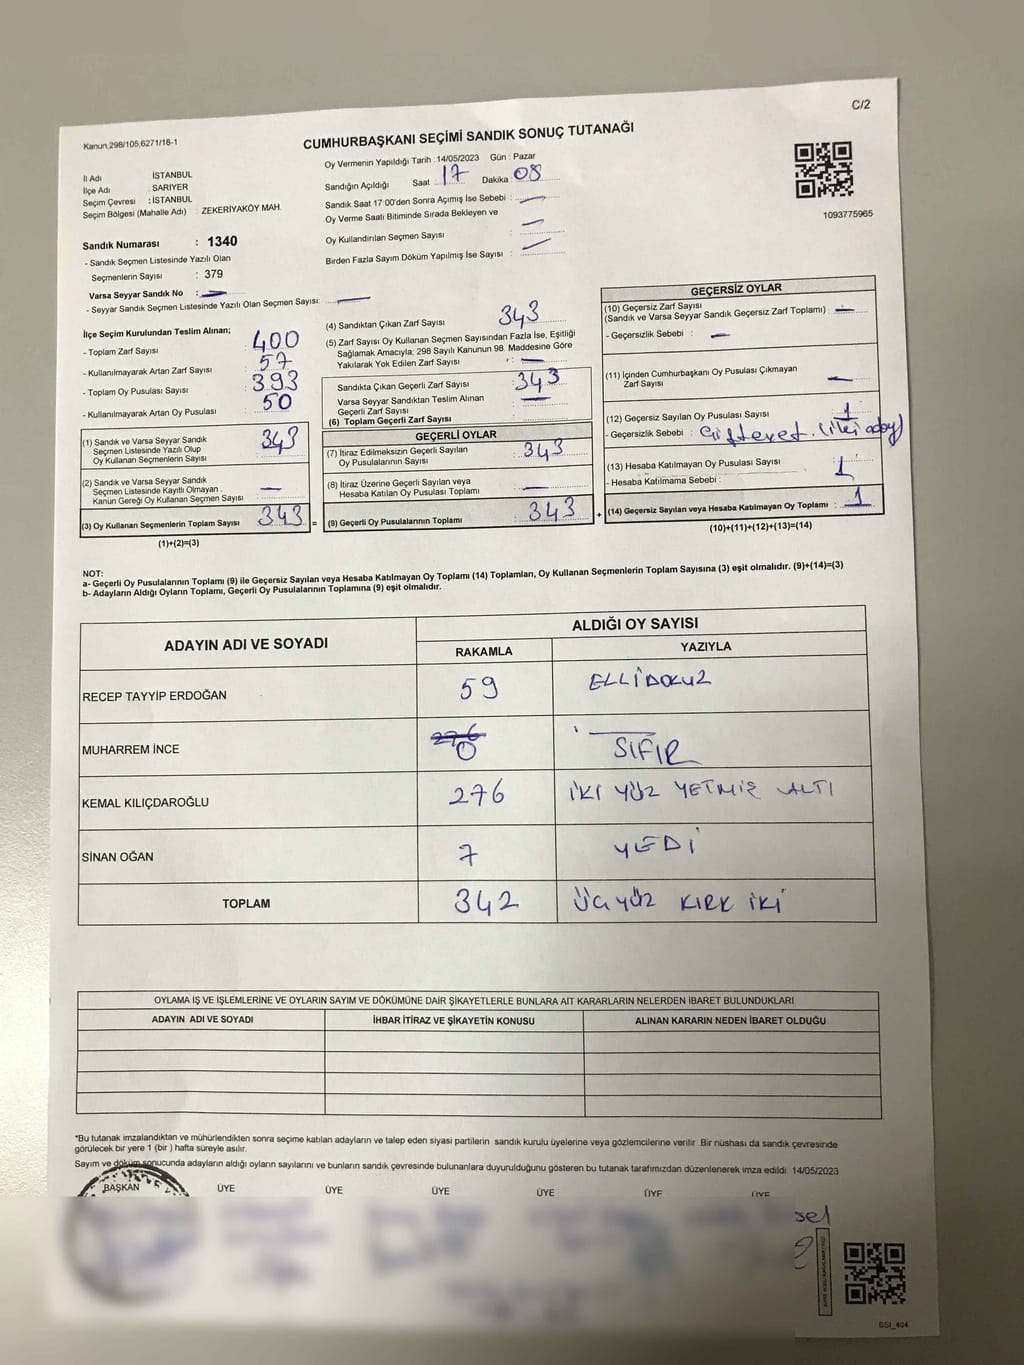 C/2
Kanun,298/105,6271/18-1
CUMHURBAŞKANI SEÇİMİ SANDIK SONUÇ TUTANAĞI
İl Adı İSTANBUL
İlçe Adı : SARIYER
Seçim Çevresi : İSTANBUL
Seçim Bölgesi (Mahalle Adı) : ZEKERİYAKÖY MAH.
Sandık Numarası : 1340
- Sandık Seçmen Listesinde Yazılı Olan
Seçmenlerin Sayısı : 379
Varsa Seyyar Sandık No : —
- Seyyar Sandık Seçmen Listesinde Yazılı Olan Seçmen Sayısı: —
Oy Vermenin Yapıldığı Tarih : 14/05/2023 Gün : Pazar
Sandığın Açıldığı Saat : 17 Dakika : 08
Sandık Saat 17:00'den Sonra Açımış İse Sebebi : —
Oy Verme Saati Bitiminde Sırada Bekleyen ve
Oy Kullandırılan Seçmen Sayısı : —
Birden Fazla Sayım Döküm Yapılmış İse Sayısı : —
1093775965
İlçe Seçim Kurulundan Teslim Alınan;
- Toplam Zarf Sayısı : 400
- Kullanılmayarak Artan Zarf Sayısı : 57
- Toplam Oy Pusulası Sayısı : 393
- Kullanılmayarak Artan Oy Pusulası : 50
(1) Sandık ve Varsa Seyyar Sandık
Seçmen Listesinde Yazılı Olup
Oy Kullanan Seçmenlerin Sayısı : 343
(2) Sandık ve Varsa Seyyar Sandık
Seçmen Listesinde Kayıtlı Olmayan
Kanun Gereği Oy Kullanan Seçmen Sayısı : —
(3) Oy Kullanan Seçmenlerin Toplam Sayısı : 343 =
(1)+(2)=(3)
(4) Sandıktan Çıkan Zarf Sayısı : 343
(5) Zarf Sayısı Oy Kullanan Seçmen Sayısından Fazla İse, Eşitliği
Sağlamak Amacıyla; 298 Sayılı Kanunun 98. Maddesine Göre
Yakılarak Yok Edilen Zarf Sayısı : —
Sandıkta Çıkan Geçerli Zarf Sayısı : 343
Varsa Seyyar Sandıktan Teslim Alınan
Geçerli Zarf Sayısı : —
(6) Toplam Geçerli Zarf Sayısı :
GEÇERLİ OYLAR
(7) İtiraz Edilmeksizin Geçerli Sayılan
Oy Pusulalarının Sayısı : 343
(8) İtiraz Üzerine Geçerli Sayılan veya
Hesaba Katılan Oy Pusulası Toplamı : —
(9) Geçerli Oy Pusulalarının Toplamı : 343 +
GEÇERSİZ OYLAR
(10) Geçersiz Zarf Sayısı
(Sandık ve Varsa Seyyar Sandık Geçersiz Zarf Toplamı) : —
- Geçersizlik Sebebi : —
(11) İçinden Cumhurbaşkanı Oy Pusulası Çıkmayan
Zarf Sayısı : —
(12) Geçersiz Sayılan Oy Pusulası Sayısı : 1
- Geçersizlik Sebebi : Çift evet. (iki aday)
(13) Hesaba Katılmayan Oy Pusulası Sayısı : 1
- Hesaba Katılmama Sebebi :
(14) Geçersiz Sayılan veya Hesaba Katılmayan Oy Toplamı : 1
(10)+(11)+(12)+(13)=(14)
NOT:
a- Geçerli Oy Pusulalarının Toplamı (9) ile Geçersiz Sayılan veya Hesaba Katılmayan Oy Toplamı (14) Toplamları, Oy Kullanan Seçmenlerin Toplam Sayısına (3) eşit olmalıdır. (9)+(14)=(3)
b- Adayların Aldığı Oyların Toplamı, Geçerli Oy Pusulalarının Toplamına (9) eşit olmalıdır.
ADAYIN ADI VE SOYADI ALDIĞI OY SAYISI
RAKAMLA YAZIYLA
RECEP TAYYİP ERDOĞAN 59 ELLİDOKUZ
MUHARREM İNCE 276 0 SIFIR
KEMAL KILIÇDAROĞLU 276 İKİ YÜZ YETMİŞ ALTI
SİNAN OĞAN 7 YEDİ
TOPLAM 342 ÜÇ YÜZ KIRK İKİ
OYLAMA İŞ VE İŞLEMLERİNE VE OYLARIN SAYIM VE DÖKÜMÜNE DAİR ŞİKAYETLERLE BUNLARA AİT KARARLARIN NELERDEN İBARET BULUNDUKLARI
ADAYIN ADI VE SOYADI İHBAR İTİRAZ VE ŞİKAYETİN KONUSU ALINAN KARARIN NEDEN İBARET OLDUĞU
*Bu tutanak imzalandıktan ve mühürlendikten sonra seçime katılan adayların ve talep eden siyasi partilerin sandık kurulu üyelerine veya gözlemcilerine verilir. Bir nüshası da sandık çevresinde
görülecek bir yere 1 (bir ) hafta süreyle asılır.
Sayım ve döküm sonucunda adayların aldığı oyların sayılarını ve bunların sandık çevresinde bulunanlara duyurulduğunu gösteren bu tutanak tarafımızdan düzenlenerek imza edildi. 14/05/2023
BAŞKAN ÜYE ÜYE ÜYE ÜYE ÜYE ÜYE
sel
SSI_404